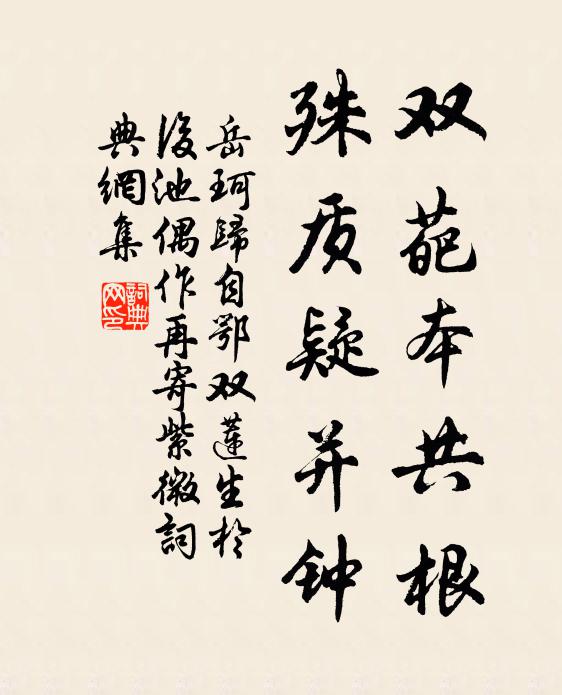 双葩本共根
殊质疑并钟
岳珂歸自鄂双蓮生於
後池偶作再寄紫微詞
典網集
詞典
网印